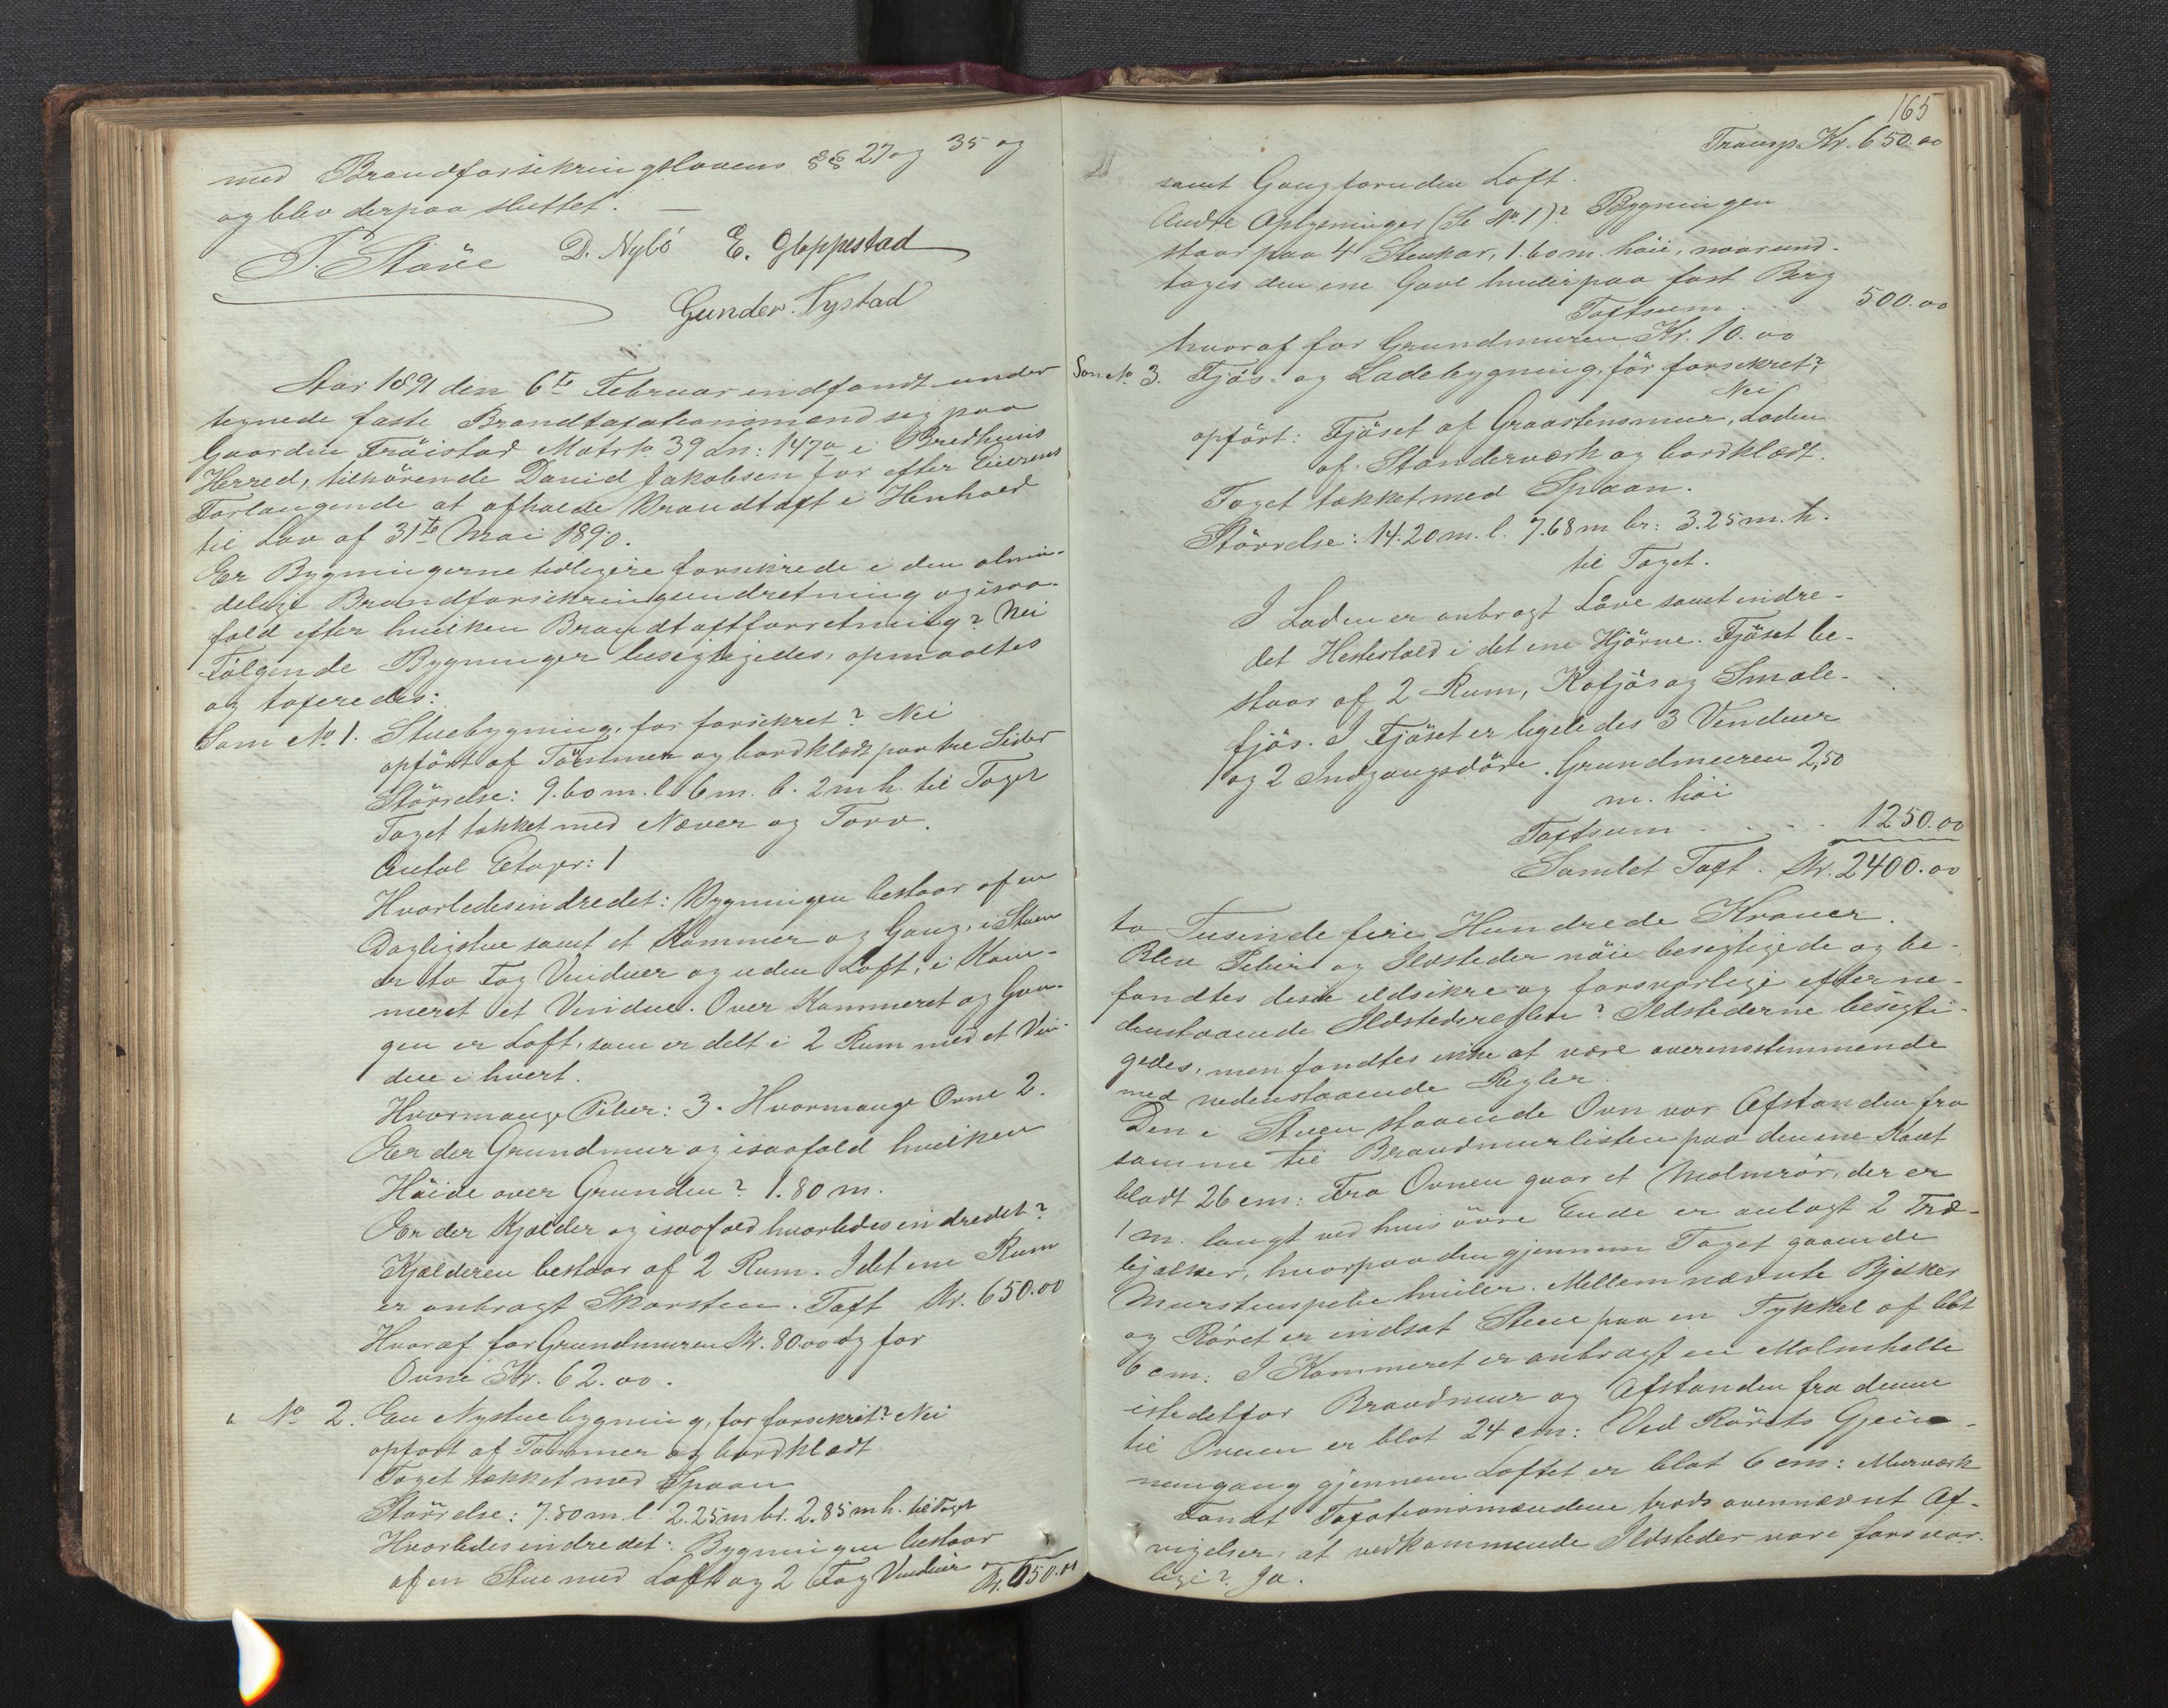 med Brandforsikringslovens §§ 27 og 35 og
og blev derpaa sluttet. —
P. Støve D. Nybö E. Gloppestad
Gunder Tystad
Aar 1891 den 6te Februar indfandt under
tegnede faste Brandtaxationsmænd sig paa
Gaarden Fröistad Matr № 39 Ln: 147a i Bredheims
Herred, tilhörende David Jakobsen for efter Eierens
Forlangende at afholde Brandtaxt i Henhold
til Lov af 31te Mai 1890.
Er Bygningerne tidligere forsikrede i den almin-
delige Brandforsikringsindretning og isaa-
fald efter hvilken Brandtaxtforretning? Nei
Fölgende Bygninger besigtigedes, opmaaltes
og taxeredes:
Som № 1. Stuebygning, før forsikret? Nei
opfört af Tömmer og bordklædt paa tre Sider
Störrelse: 9.60 m. l. 6 m. b. 2 m h. til Taget
Taget tækket med Næver og Torv.
Antal Etager: 1
Hvorledes indredet: Bygningen bestaar af en
Dagligstue samt et Kammer og Gang, i Stuen
er to Fag Vinduer og uden Loft, i Kam-
meret et Vindue. Over Kammeret og Gan-
gen er Loft, som er delt i 2 Rum med et Vin-
due i hvert.
Hvormange Piber: 3. Hvormange Ovne 2.
Er der Grundmur og isaafald hvilken
Höide over Grunden? 1.80 m.
Er der Kjælder og isaafald hvorledes indredet?
Kjælderen bestaar af 2 Rum. I det ene Rum
er anbragt Skorsten. Taxt Kr. 650.00
Hvoraf for Grundmuren Kr. 80.00 og for
Ovne Kr. 62.00.
" № 2. En Nystuebygning, før forsikret? Nei
opfört af Tømmer og bordklædt
Taget tækket med Spaan
Störrelse: 7.80 m. l. 2.25 m br. 2.85 m h. til Taget
Hvorledes indredet: Bygningen bestaar
af en Stue med Loft og 2 Fag Vinduer
Kr. 650.00
165
Transp. Kr. 650.00
samt Gang foruden Loft.
Andre Oplysninger (Se № 1)? Bygningen
staar paa 4 Stenkar, 1.60 m. höie, naar und-
tages den ene Gavl hviler paa fast Berg
Taxtsum . . 500.00
hvoraf for Grundmuren Kr. 10.00
Som № 3. Fjös- og Ladebygning, för forsikret?
Nei
opfört: Fjöset af Graastensmur, Laden
af Standerværk og bordklædt.
Taget tækket med Spaan.
Störrelse: 14.20 m. l. 7.68 m br: 3.25 m. h.
til Taget.
I Laden er anbragt Låve samt indre-
det Hestestald i det ene Hjörne. Fjöset be-
staar af 2 Rum, Kofjös og Smale-
fjös. I Fjöset er ligeledes 3 Vinduer
og 2 Indgangsdöre. Grundmuren 2,50
m. höi
Taxtsum . . . . 1250.00
Samlet Taxt. Kr. 2400.00
to Tusinde fire Hundrede Kroner.
Blev Piber og Ildsteder nöie besigtigede og be-
fandtes disse ildsikre og forsvarlige efter ne-
denstaaende Ildstedsregler? Ildstederne besigti-
gedes, men fandtes ikke at være overensstemmende
med nedenstaaende Regler.
Den i Stuen staaende Ovn var Afstanden fra
samme til Brandmurlisten paa den ene Kant
blodt 26 cm: Fra Ovnen gaar et Malmrör, der er
1 m. langt ved hvis övre Ende er anlagt 2 Træ-
bjælker, hvorpaa den gjennem Taget gaaende
Murstenspibe hviler. Mellem nævnte Bjelker
og Röret er indsat Stene paa en Tykkel af blot
6 cm: I Kammeret er anbragt en Malmhelle
istedetfor Brandmur og Afstanden fra denne
til Ovnen er blot 24 cm: Ved Rörets Gjen-
nemgang gjennem Loftet er blot 6 cm: Murværk
Fandt Taxationsmændene trods ovennævnt Af-
vigelser, at vedkommende Ildsteder vare forsvar-
lige? Ja.